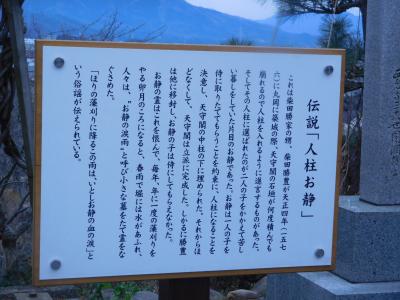 伝説「人柱お静」
これは柴田勝家の甥、柴田勝豊が天正四年（一五七
六）に丸岡に築城の際、天守閣の石垣が何度積んでも
崩れるので人柱を入れるように進言するものがあった。
そしてその人柱に選ばれたのが二人の子をかかえて苦し
い暮しをしていた片目のお静であった。お静は一人の子を
侍に取りたててもらうことを約束に、人柱になることを
決意し、天守閣の中柱の下に埋められた。それからほ
どなくして、天守閣は立派に完成した。しかるに勝豊
は他に移封し、お静の子は侍にしてもらえなかった。
お静の霊はこれを恨んで、毎年、年に一度の藻刈りを
やる卯月のころになると、春雨で堀には水があふれ、
人々は、“お静の涙雨”と呼び小さな墓をたて霊をな
ぐさめた。
「ほりの藻刈りに降るこの雨は、いとしお静の血の涙」と
いう俗謡が伝えられている。